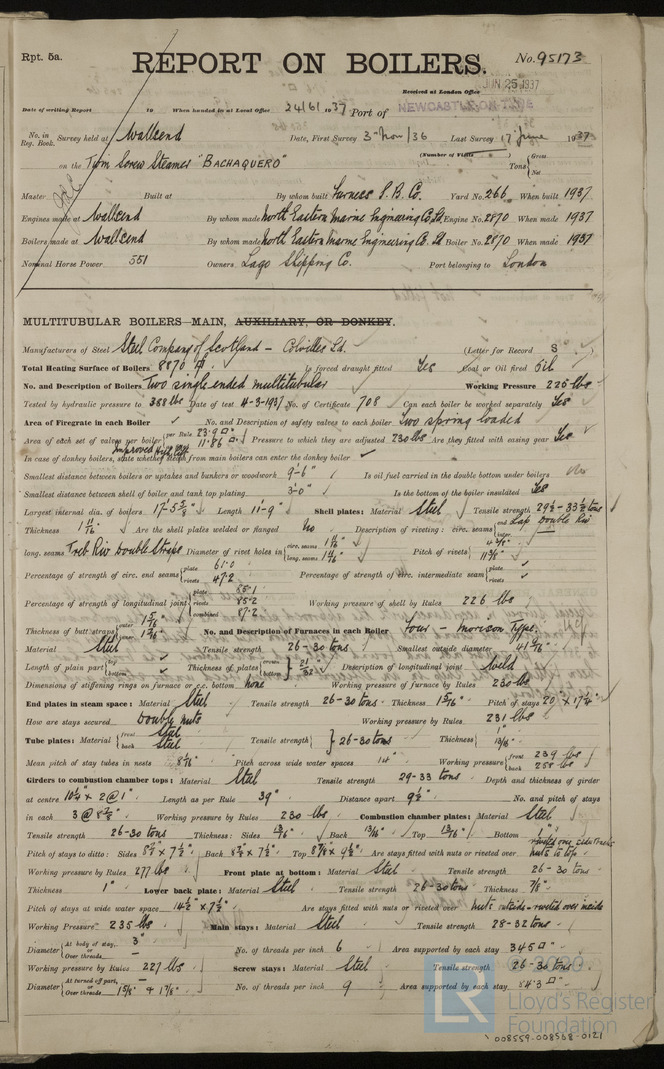 Rpt. 5a.
REPORT ON BOILERS.
No. 95173
Received at London Office JUN 25 1937
Date of writing Report 19 When handed in at Local Office 24/6/1937 Port of NEWCASTLE-ON-TYNE
No. in Reg. Book. Survey held at Wallsend Date, First Survey 3rd Nov/36 Last Survey 17 June 1937
(Number of Visits
on the Twin Screw Steamer "BACHAQUERO" Tons { Gross Net
Master Built at By whom built Furness S. B. Co. Yard No. 266 When built 1937
Engines made at Wallsend By whom made North Eastern Marine Engineering Co. Ltd Engine No. 2870 When made 1937
Boilers made at Wallsend By whom made North Eastern Marine Engineering Co. Ltd Boiler No. 2870 When made 1937
Nominal Horse Power 551 Owners Lago Shipping Co. Port belonging to London
MULTITUBULAR BOILERS—MAIN, AUXILIARY, OR DONKEY.
Manufacturers of Steel Steel Company of Scotland - Colvilles Ld. (Letter for Record S
Total Heating Surface of Boilers 8870 Is forced draught fitted Yes Coal or Oil fired Oil
No. and Description of Boilers Two single ended multitubular Working Pressure 225 lbs
Tested by hydraulic pressure to 388 lbs Date of test 4-3-1937 No. of Certificate 708 Can each boiler be worked separately Yes
Area of Firegrate in each Boiler No. and Description of safety valves to each boiler Two spring loaded
Area of each set of valves per boiler { per Rule 23.9 11.86 Pressure to which they are adjusted 230 lbs Are they fitted with easing gear Yes
Improved High Lift
In case of donkey boilers, state whether steam from main boilers can enter the donkey boiler
Smallest distance between boilers or uptakes and bunkers or woodwork 9'-6" Is oil fuel carried in the double bottom under boilers No
Smallest distance between shell of boiler and tank top plating 3'-0" Is the bottom of the boiler insulated Yes
Largest internal dia. of boilers 17'-5 Length 11'-9" Shell plates: Material Steel Tensile strength 29½-33½ tons
Thickness 1 11/16" Are the shell plates welded or flanged No Description of riveting: circ. seams { end Lap Double Riv inter.
long. seams Treb Riv Double Straps Diameter of rivet holes in { circ. seams long. seams Pitch of rivets {
Percentage of strength of circ. end seams { plate 61.0 rivets 47.2 Percentage of strength of circ. intermediate seam { plate rivets
Percentage of strength of longitudinal joint { plate 85.1 rivets 85.2 combined 87.2 Working pressure of shell by Rules 226 lbs
Thickness of butt straps { outer inner No. and Description of Furnaces in each Boiler Four - Morison Type.
Material Steel Tensile strength 26-30 tons Smallest outside diameter
Length of plain part { top bottom Thickness of plates { crown bottom } 21/32" Description of longitudinal joint Weld
Dimensions of stiffening rings on furnace or c.c. bottom none Working pressure of furnace by Rules 230 lbs
End plates in steam space: Material Steel Tensile strength 26-30 tons Thickness Pitch of stays 20" x 17¼"
How are stays secured Double nuts Working pressure by Rules 231 lbs
Tube plates: Material { front Steel back Steel Tensile strength } 26-30 tons Thickness { 1" 13/16"
Mean pitch of stay tubes in nests Pitch across wide water spaces Working pressure { front 239 lbs back 258 lbs
Girders to combustion chamber tops: Material Steel Tensile strength 29-33 tons Depth and thickness of girder
at centre 10¼" x 2 @ 1" Length as per Rule 39" Distance apart 9½" No. and pitch of stays
in each 3 @ 8⅞" Working pressure by Rules 230 lbs Combustion chamber plates: Material Steel
Tensile strength 26-30 tons Thickness: Sides 13/16" Back 13/16" Top 13/16" Bottom 1"
Pitch of stays to ditto: Sides x 7½" Back x 7½" Top Are stays fitted with nuts or riveted over nuts to top.
Working pressure by Rules 277 lbs Front plate at bottom: Material Steel Tensile strength 26-30 tons
Thickness 1" Lower back plate: Material Steel Tensile strength 26-30 tons Thickness 7/8"
Pitch of stays at wide water space 14½" x 7½" Are stays fitted with nuts or riveted over nuts outside - riveted over inside
Working Pressure 235 lbs Main stays: Material Steel Tensile strength 28-32 tons
Diameter { At body of stay, 3" or Over threads No. of threads per inch 6 Area supported by each stay 345
Working pressure by Rules 227 lbs Screw stays: Material Steel Tensile strength 26-30 tons
Diameter { At turned off part, or Over threads 1⅝" & 1⅞" No. of threads per inch 9 Area supported by each stay
© 2020
LR
Lloyd's Register Foundation
008559-008568-0121